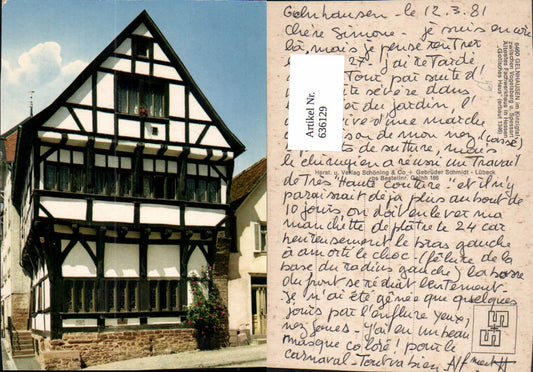 Gelnhausen - le 12.3.81
Chère Simone - je suis encore
là, mais je pense rentrer
le 27 - j'ai retardé
tout par suite d'
sévère dans
du jardin, l'
d'une marche
de mon nez, (cassé)
de suture, mais
le chirurgien a réussi un travail
de "Très Haute couture" et il n'y
paraissait déjà plus au bout de
10 jours, on doit enlever ma
manchette de plâtre le 24 car
heureusement le bras gauche
a amorti le choc (fêlure de la
base du radius gauche) la bosse
du front se réduit lentement -
Je n'ai été gênée que quelques
jours par l'enflure yeux,
nez joues - J'ai eu un beau
masque coloré ! pour le
carnaval - Tout va bien
6460 GELNHAUSEN im Kinzigtal
zwischen Vogelsberg u. Spessart
Ältestes Fachwerkhaus in Hessen
"Gotisches Haus"
Artikel Nr.
638129
Herst. u. Verlag Schöning & Co + Gebrüder Schmidt - Lübeck
Bestellnr. Gelnh 186